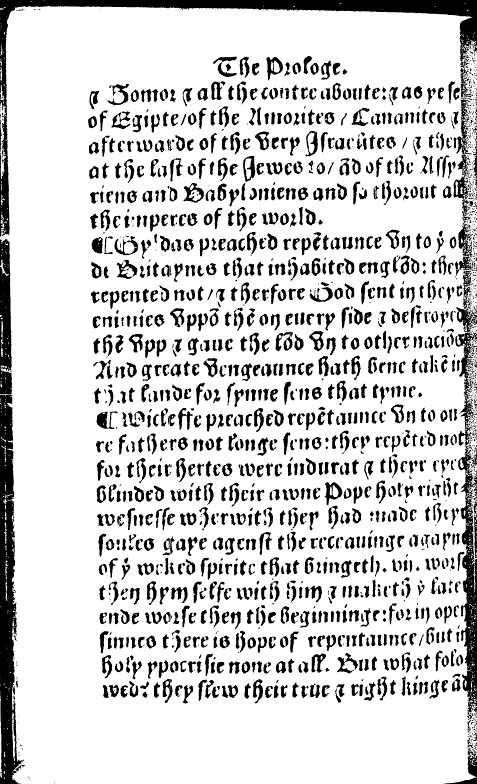 The Prologe.
⁊ Gomor ⁊ all the contre aboute: ⁊ as ye se
of Egipte / of the Amorites / Cananites ⁊
afterwarde of the very Israelites / ⁊ then
at the last of the Jewes to / ād of the Assy-
riens and Babyloniens and so thorout all
the imperes of the world.
¶ Gyldas preached repētaunce vn to ẏ ol
de Britaynes that inhabited englōd: they
repented not / ⁊ therfore God sent in theyr
enimies vppō thē on euery side ⁊ destroyed
thē vpp ⁊ gaue the lōd vn to other naciōs
And greate vengeaunce hath bene takē in
that lande for synne sens that tyme.
¶ Wicleffe preached repētaunce vn to ou-
re fathers not longe sens: they repēted not
for their hertes were indurat ⁊ theyr eyes
blinded with their awne Pope holy right-
wesnesse wherwith they had made theyr
soules gaye agenst the receauinge agayne
of ẏ weked spirite that bringeth .vii. worse
then hym selfe with him ⁊ maketh ẏ later
ende worse then the beginninge: for in open
sinnes there is hope of repentaunce / but in
holy ypocrisie none at all. But what folo
wed? they slew their true ⁊ right kinge ād